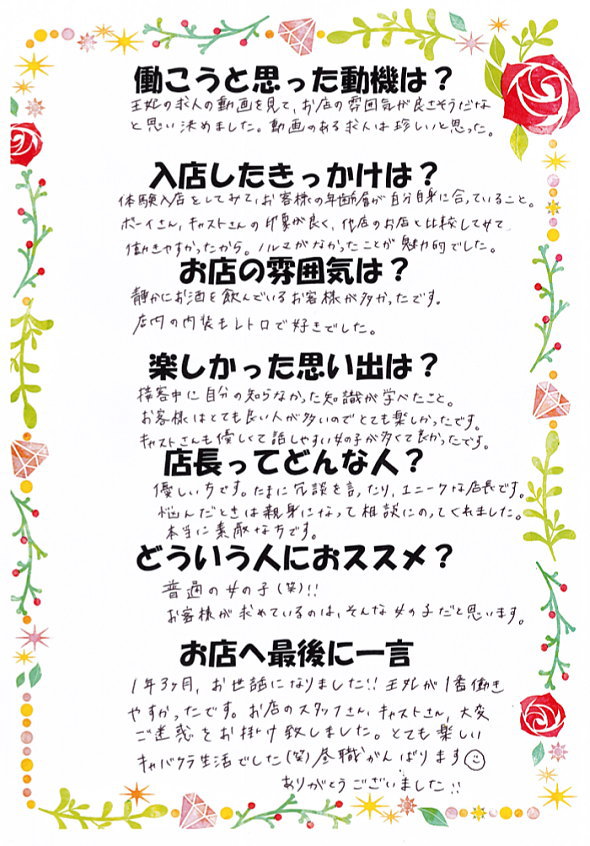 働こうと思った動機は？
王妃の求人の動画を見て、お店の雰囲気が良さそうだな
と思い決めました。動画のある求人は珍しいと思った。
入店したきっかけは？
体験入店をしてみて、お客様の年齢層が自分自身に合っていること。
ボーイさん、キャストさんの印象が良く、他店のお店と比較してみて
働きやすかったから。ノルマがなかったことが魅力的でした。
お店の雰囲気は？
静かにお酒を飲んでいるお客様が多かったです。
店内の内装もレトロで好きでした。
楽しかった思い出は？
接客中に自分の知らなかった知識が学べたこと。
お客様はとても良い人が多いのでとても楽しかったです。
キャストさんも優しくて話しやすい女の子が多くて良かったです。
店長ってどんな人？
優しい方です。たまに冗談を言ったり、ユニークな店長です。
悩んだときは親身になって相談にのってくれました。
本当に素敵な方です。
どういう人におススメ？
普通の女の子(笑)!!
お客様が求めているのは、そんな女の子だと思います。
お店へ最後に一言
1年3ヶ月、お世話になりました!!王妃が1番働き
やすかったです。お店のスタッフさん、キャストさん、大変
ご迷惑をお掛け致しました。とても楽しい
キャバクラ生活でした(笑)昼職がんばります
ありがとうございました!!